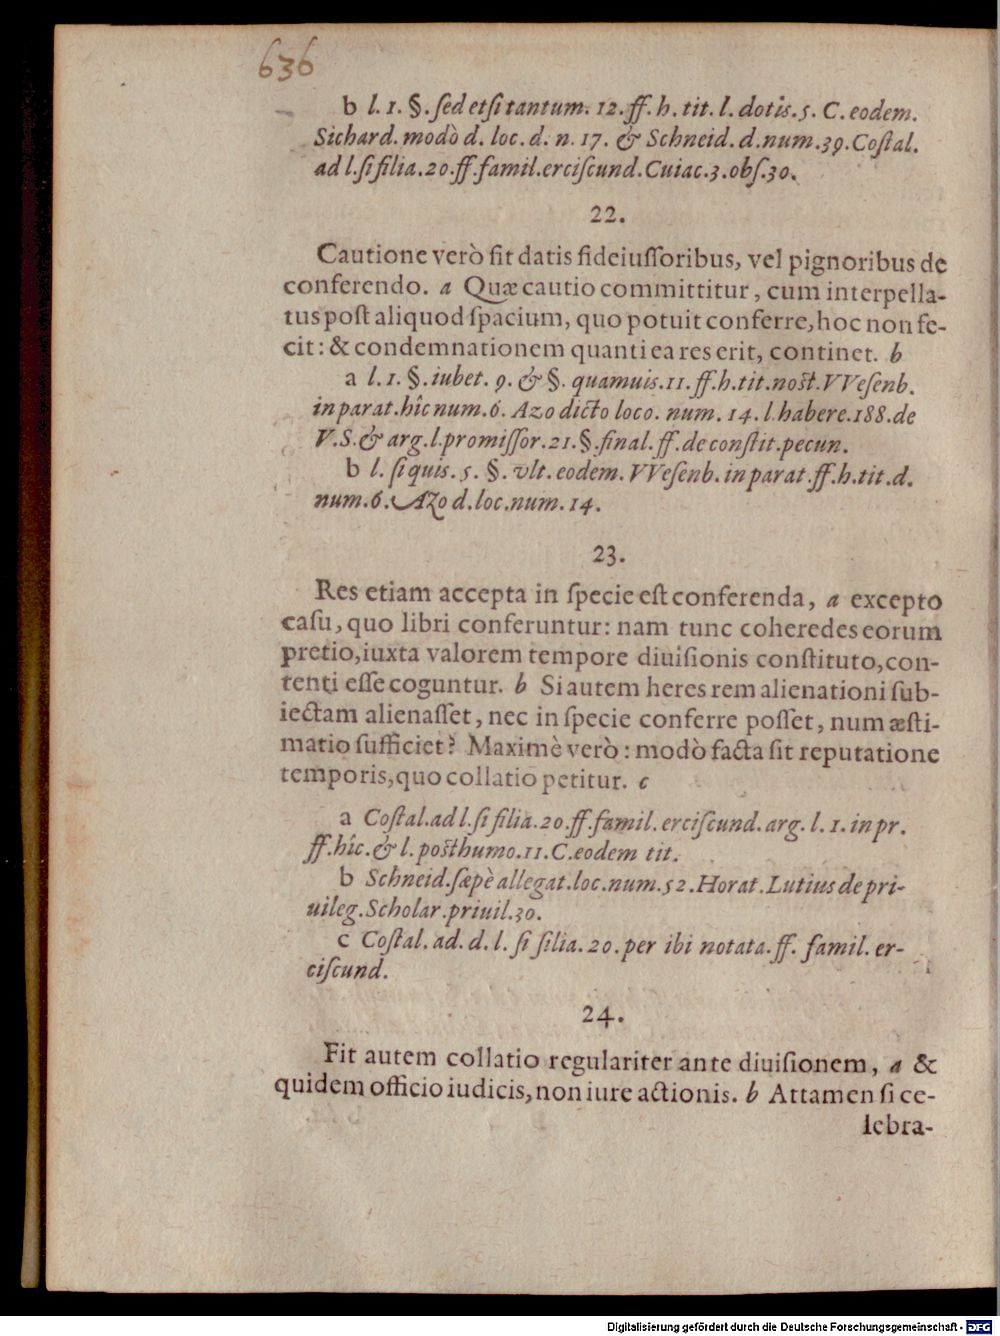 636
b l. 1. §. ſed etſi tantum. 12. ff. h. tit. l. dotis. 5. C. eodem.
Sichard. modò d. loc. d. n. 17. & Schneid. d. num. 39. Coſtal.
ad l. ſi filia. 20. ff. famil. erciſcund. Cuiac. 3. obſ. 30.
22.
Cautione verò fit datis fideiuſſoribus, vel pignoribus de
conferendo. a Quæ cautio committitur, cum interpella-
tus poſt aliquod ſpacium, quo potuit conferre, hoc non fe-
cit: & condemnationem quanti ea res erit, continet. b
a l. 1. §. iubet. 9. & §. quamuis. 11. ff. h. tit. noſt. VVeſenb.
in parat. hîc num. 6. Azo dicto loco. num. 14. l. habere. 188. de
V. S. & arg. l. promiſſor. 21. §. final. ff. de conſtit. pecun.
b l. ſi quis. 5. §. vlt. eodem. VVeſenb. in parat. ff. h. tit. d.
num. 6. Azo d. loc. num. 14.
23.
Res etiam accepta in ſpecie eſt conferenda, a excepto
caſu, quo libri conferuntur: nam tunc coheredes eorum
pretio, iuxta valorem tempore diuiſionis conſtituto, con-
tenti eſſe coguntur. b Si autem heres rem alienationi ſub-
iectam alienaſſet, nec in ſpecie conferre poſſet, num æſti-
matio ſufficiet? Maximè verò: modò facta ſit reputatione
temporis, quo collatio petitur. c
a Coſtal. ad l. ſi filia. 20. ff. famil. erciſcund. arg. l. 1. in pr.
ff. hîc. & l. poſthumo. 11. C. eodem tit.
b Schneid. ſæpè allegat. loc. num. 52. Horat. Lutius de pri-
uileg. Scholar. priuil. 30.
c Coſtal. ad. d. l. ſi filia. 20. per ibi notata. ff. famil. er-
ciſcund.
24.
Fit autem collatio regulariter ante diuiſionem, a &
quidem officio iudicis, non iure actionis. b Attamen ſi ce-
lebra-
Digitalisierung gefördert durch die Deutsche Forschungsgemeinschaft - DFG